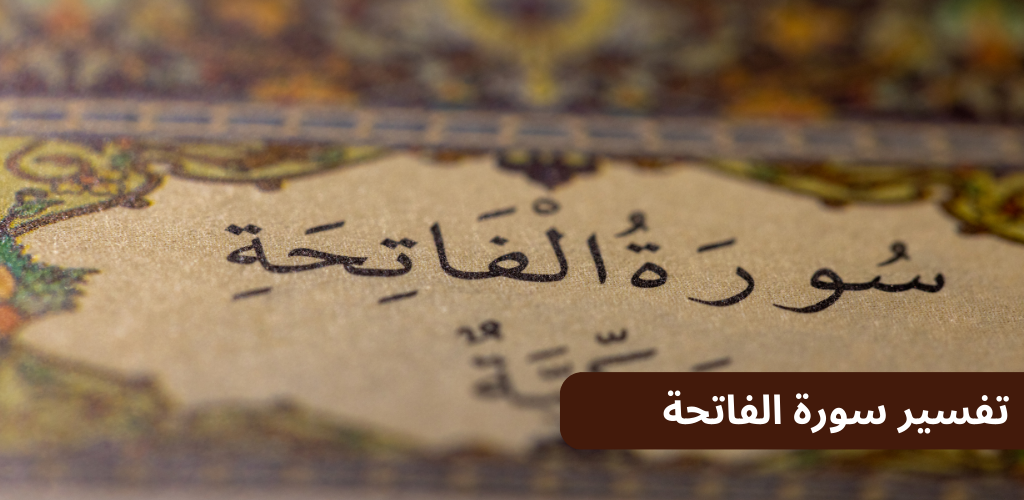 سُورَةُ الْفَاتِحَةِ
تفسير سورة الفاتحة